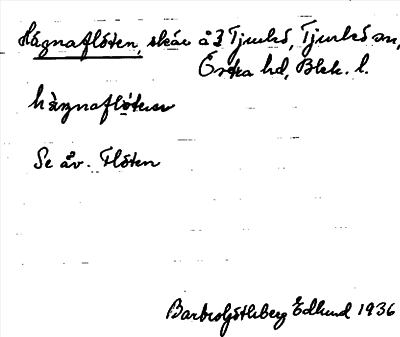 Hágnaflóten, skär å 3 Tjurkö, Tjurkö sn,
Östra hd, Blek. l.
hàgnaflóten
Se äv. Flóten
Barbro Götheberg Edlund 1936